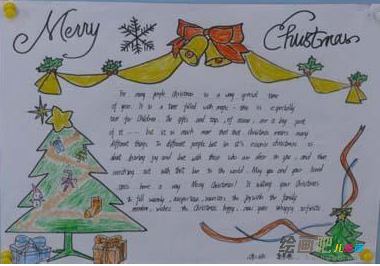 Merry Christmas
For many people Christmas is a very special time
of year. It is a time filled with magic - this is especially
true for children. The gifts and toys, of course, are a big part
of it -- but it is much more than that Christmas means many
different things to different people but in it's essence christmas is
about sharing joy and love with those who are dear to you, and then
reaching out with that love to the world. May you and your loved
ones have a very Merry Christmas! is wishing your Christmas
to fill warmly, auspicious, munches the joy with the family
member, wishes the Christmas happy, new year
绘画吧